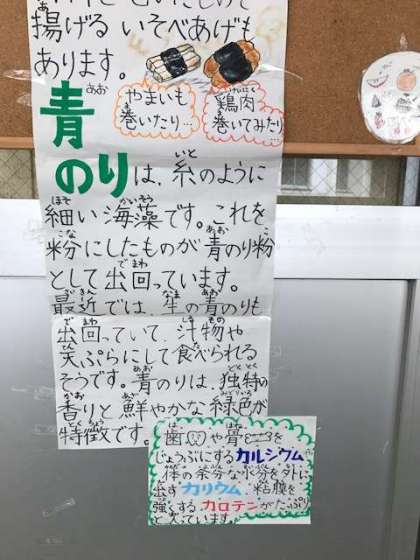 揚げる いそべあげも
あります。
やまいも
巻いたり…
鶏肉
巻いてみたり…
青
のりは、糸のように
細い海藻です。これを
粉にしたものが青のり粉
として出回っています。
最近では、生の青のりも
出回っていて、汁物や
天ぷらにして食べられる
そうです。青のりは、独特の
香りと鮮やかな緑色が
特徴です。
歯や骨を
じょうぶにするカルシウム
体の余分な水分を外に
出すカリウム、粘膜を
強くするカロテンがたっぷり